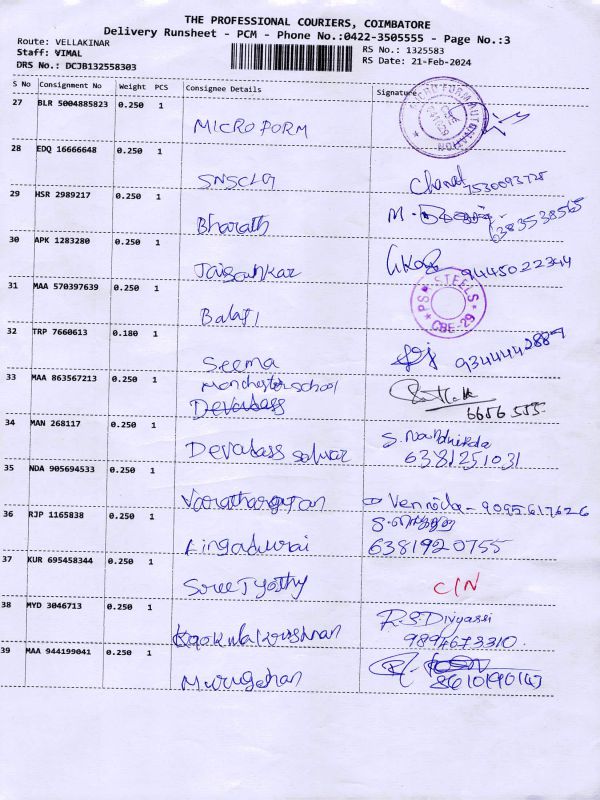 THE PROFESSIONAL COURIERS, COIMBATORE
Delivery Runsheet - PCM - Phone No.:0422-3505555 - Page No.:3
Route: VELLAKINAR
Staff: VIMAL
DRS No.: DCJB132558303
RS No.: 1325583
RS Date: 21-Feb-2024
S No Consignment No Weight PCS Consignee Details Signature
27 BLR 5004885823 0.250 1
MICROFORM
28 EDQ 16666648 0.250 1
SNSCLG
7530093725
29 HSR 2989217 0.250 1
Bharath M.
6383538565
30 APK 1283280 0.250 1
Jaisankar 9445022344
31 MAA 570397639 0.250 1
Balaji PS STEELS CBE-29
32 TRP 7660613 0.180 1
Seema 9344442887
33 MAA 863567213 0.250 1
Manchester school
Devabass
6656555
34 MAN 268117 0.250 1
Devabass salwar 6381251031
35 NDA 905694533 0.250 1
Vennila - 9095617626
36 RJP 1165838 0.250 1
Lingadurai 6381920755
37 KUR 695458344 0.250 1
Sree Jyothy C/N
38 MYD 3046713 0.250 1
R.S.Divyasri
Gokulakrishnan 9894673310
39 MAA 944199041 0.250 1
Murugehan